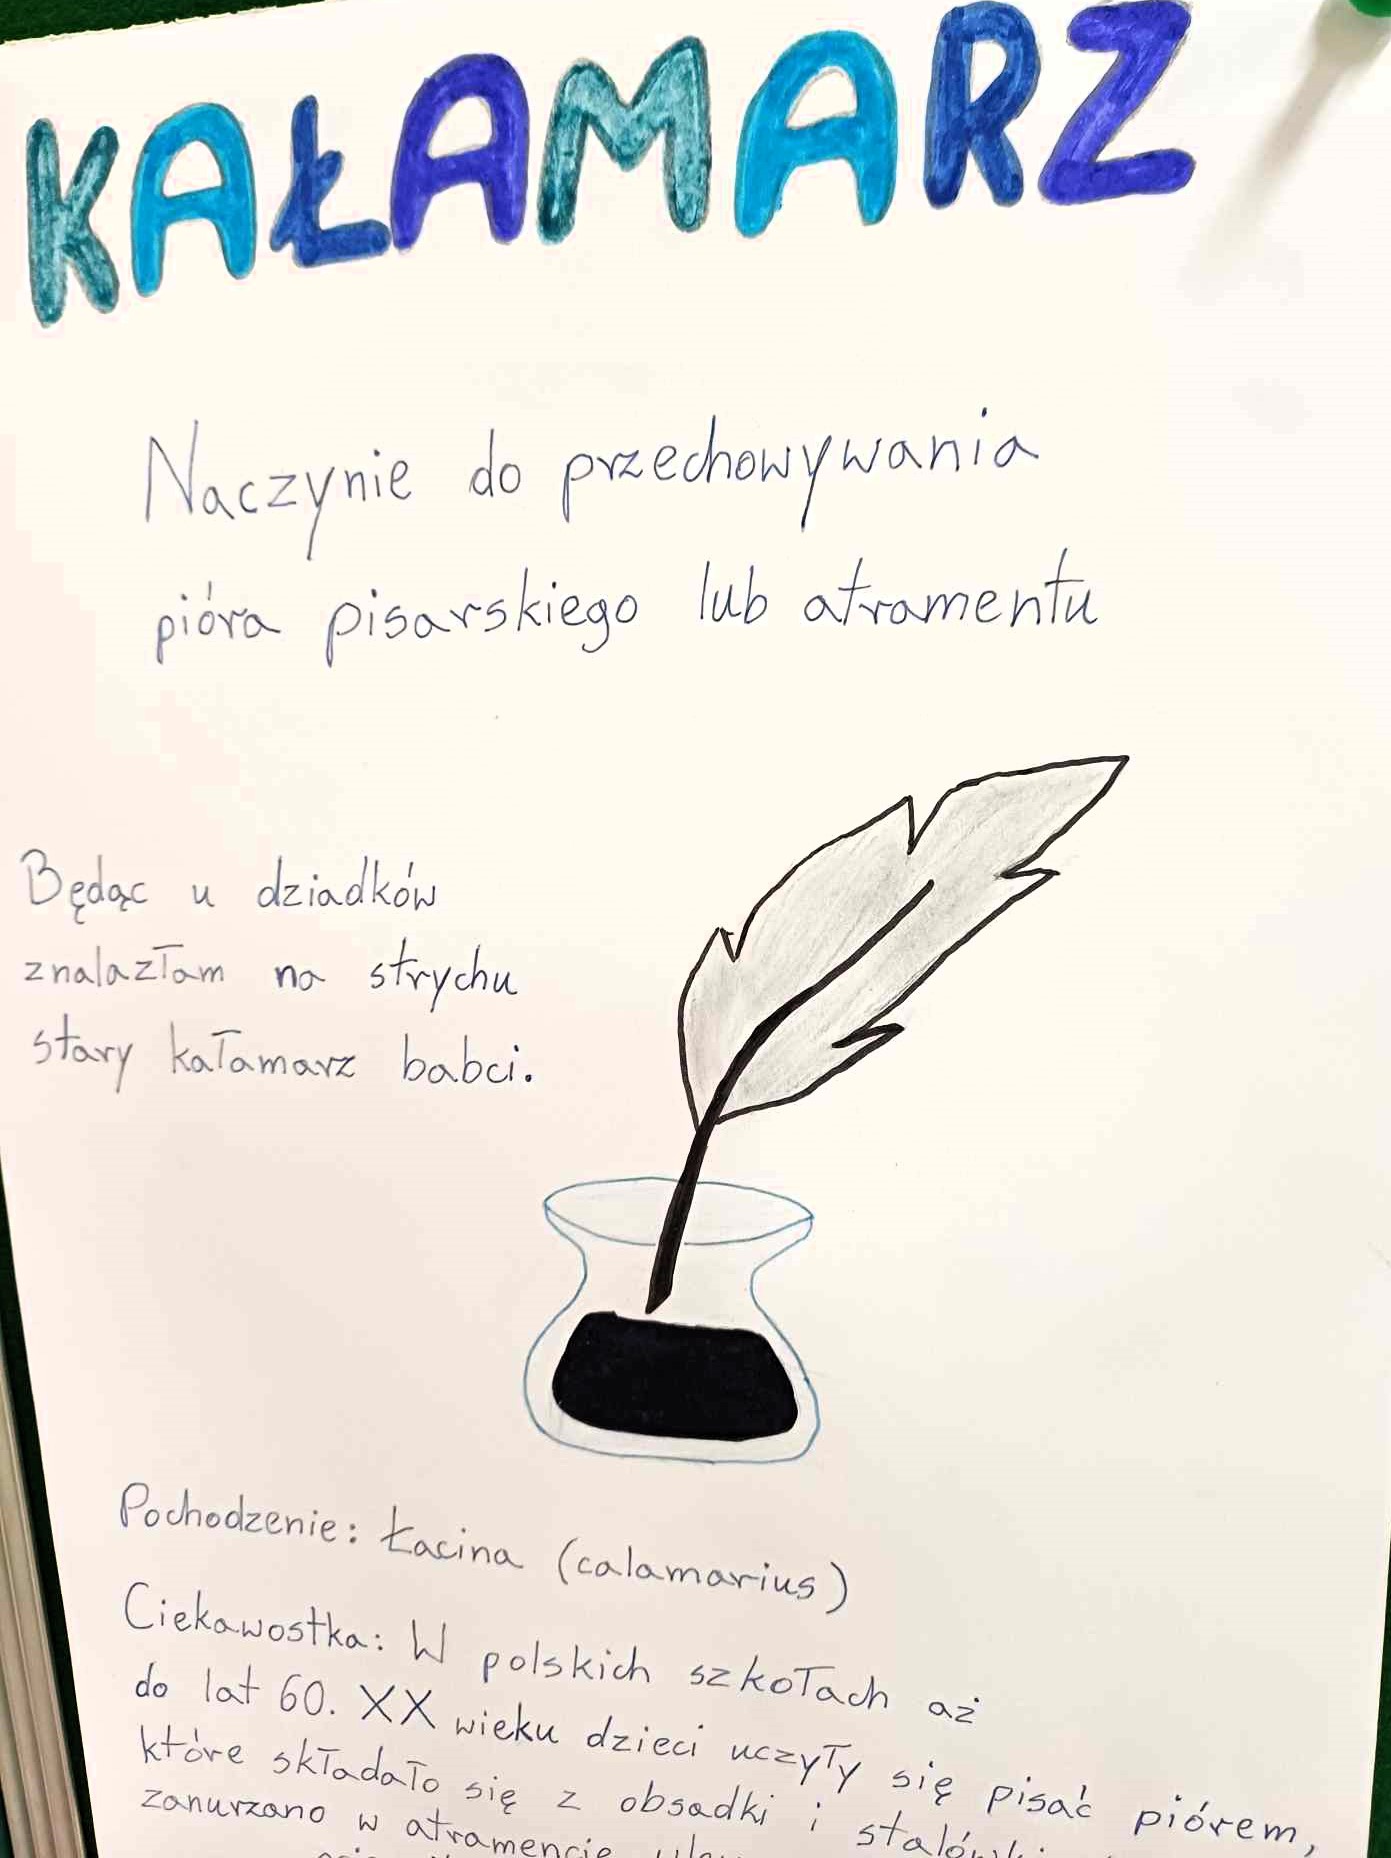 KAŁAMARZ
Naczynie do przechowywania
pióra pisarskiego lub atramentu
Będąc u dziadków
znalazłam na strychu
stary kałamarz babci.
Pochodzenie: Łacina (calamarius)
Ciekawostka: W polskich szkołach aż
do lat 60. XX wieku dzieci uczyły się pisać piórem,
które składało się z obsadki i stalówki
zanurzano w atramencie